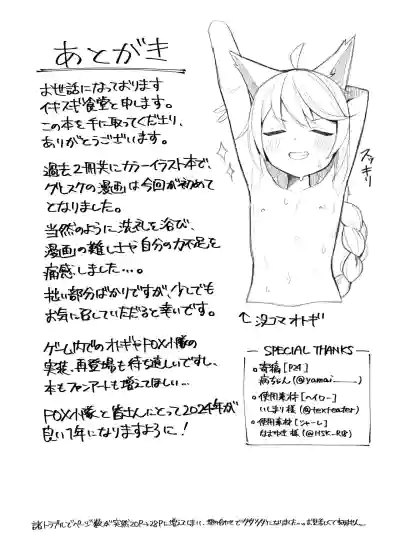 あとがき
お世話になっております
イキスギ食堂と申します。
この本を手に取ってくださり、
ありがとうございます。
過去2冊共にカラーイラスト本で、
グレスケの漫画は今回が初めて
となりました。
当然のように洗礼を浴び、
漫画の難しさや自分の力不足を
痛感しました…。
拙い部分ばかりですが、少しでも
お気に召していただると幸いです。
ゲーム内でのオトギやFOX小隊の
実装、再登場も待ち遠しいですし、
本もファンアートも増えてほしい…
FOX小隊と皆さんにとって2024年が
良い1年になりますように!
スッキリ
↑没コマオトギ
SPECIAL THANKS
○寄稿[P24]
病ちゃん(@yamai____)
○使用素材[ヘイロー]
いしまり様(@texteater)
○使用素材[シャーレ]
なまゆき様(@HSK_RB)
諸トラブルでページ数が突然20P→28Pに増えてしまい、